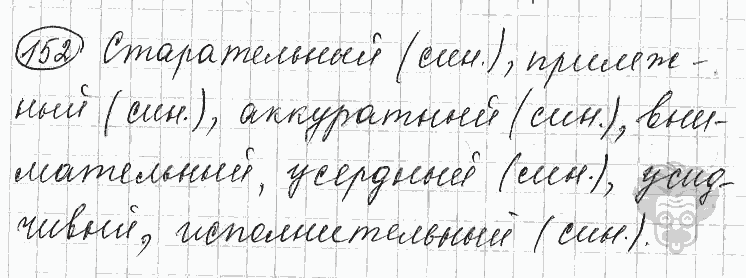 152 Старательный (син.), прилеж-
ный (син.), аккуратный (син.), вни-
мательный, усердный (син.), усид-
чивый, исполнительный (син.).